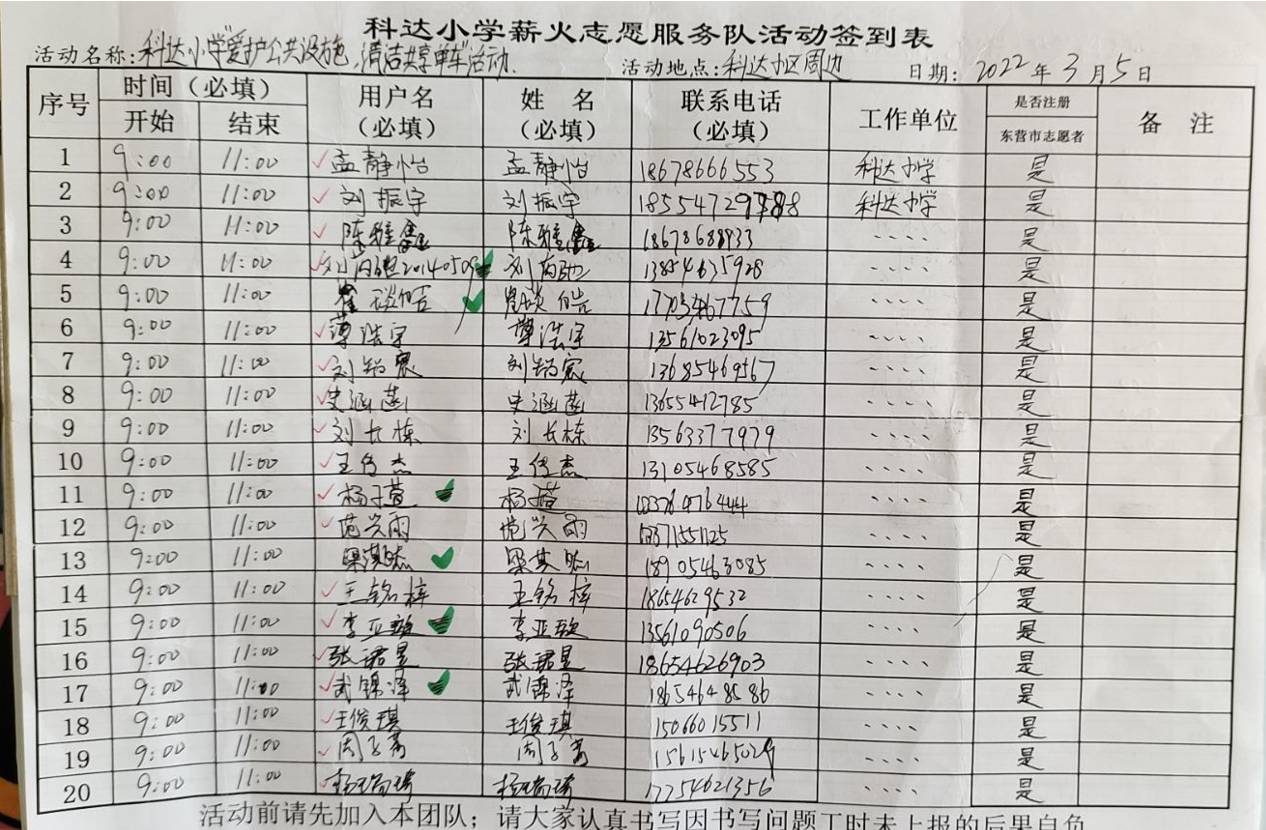 科达小学薪火志愿服务队活动签到表
活动名称:科达小学"爱护公共设施,清洁共享单车"活动. 活动地点:科达小区周边 日期: 2022 年 3 月 5 日
序号 时间（必填） 用户名 姓 名 联系电话 工作单位 是否注册 备 注
开始 结束 （必填） （必填） （必填） 东营市志愿者
1 9:00 11:00 孟静怡 孟静怡 18678666553 科达小学 是
2 9:00 11:00 刘振宇 刘振宇 科达小学 是
3 9:00 11:00 陈雅鑫 陈雅鑫 18678688933 、、、、 是
4 9:00 11:00 13854635928 、、、、 是
5 9:00 11:00 17703467759 、、、、 是
6 9:00 11:00 薄浩宇 薄浩宇 13561023095 、、、、 是
7 9:00 11:00 13685469567 、、、、 是
8 9:00 11:00 史涵菡 史涵菡 13655412785 、、、、 是
9 9:00 11:00 刘长栋 刘长栋 13563377979 、、、、 是
10 9:00 11:00 王传杰 王传杰 13105468585 、、、、 是
11 9:00 11:00 杨子萱 杨子萱 、、、、 是
12 9:00 11:00 范兴雨 范兴雨 、、、、 是
13 9:00 11:00 18905463085 、、、、 是
14 9:00 11:00 王铭梓 王铭梓 18654629532 、、、、 是
15 9:00 11:00 李亚璇 李亚璇 13561090506 、、、、 是
16 9:00 11:00 张珺昱 张珺昱 18654626903 、、、、 是
17 9:00 11:00 武锦泽 武锦泽 18654648586 、、、、 是
18 9:00 11:00 王俊琪 王俊琪 15066015511 、、、、 是
19 9:00 11:00 周子蕎 周子蕎 15615465029 、、、、 是
20 9:00 11:00 17754621356 、、、、 是
活动前请先加入本团队；请大家认真书写因书写问题工时未上报的后果自负